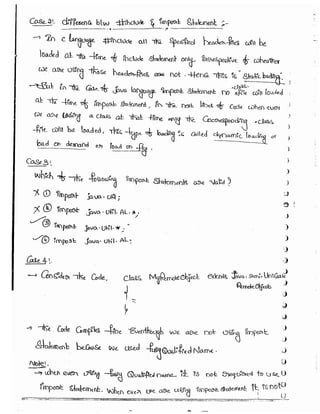 Case 2: difference b/w #include & import Statement :-
→ In c language #include all the Specified header-files will be
loaded at the time of include statement only, irrespective of whether
we are using those header-files are not. Hence this is "Static loading".
→ But in the Case of Java language import Statement no .class file will loaded
at the time of import Statement, in the next lines of Code when ever
we are using a class at that time only the Corresponding .class
-file will be loaded, this type of loading is called dynamic loading or
load on demand or load on fly.
Case 3:
Which of the following import Statements are Valid ?
X ① import java.util;
X ② import java.util.AL.*;
✓③ import java.util.*;
✓④ import java.util.AL;
Case 4:
→ Consider the Code, class MyRemoteObject extends java.rmi.Unicast
RemoteObject
{
}
→ The Code Compiles fine Eventhough we are not using import
Statement because we used fully Qualified Name.
Note:
→ when ever using fully Qualified name it is not required to use
import Statement. When ever we are using import Statement it is not